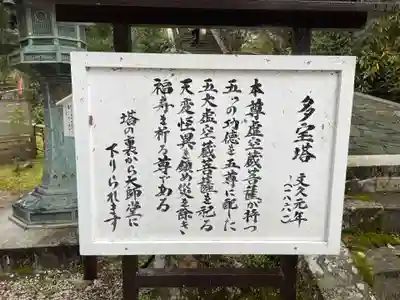 多宝塔
文久元年
(一八六一)
本尊虚空蔵菩薩が持つ
五つの功徳を五尊に配した
五大虚空蔵菩薩を祀る
天変恒異を鎮め災を除き
福寿を祈る尊である
塔の裏から大師堂に
下りられます